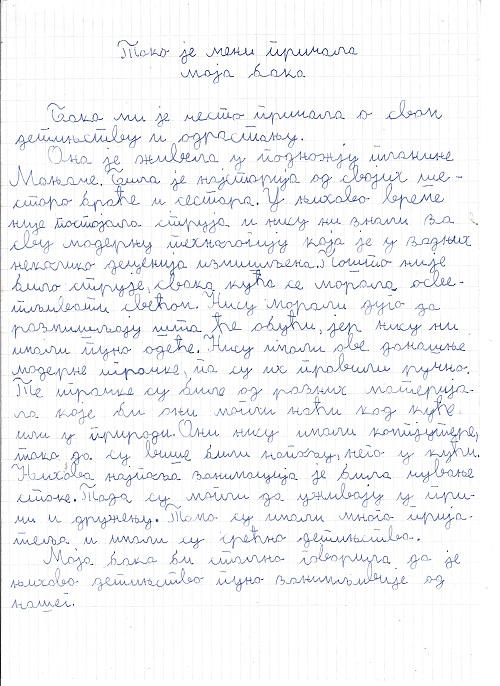 Тако је мени причала
моја бака
Бака ми је често причала о свом
детињству и одрастању.
Она је живела у подножју планине
Мањаче. Била је најстарија од својих ше-
сторо браће и сестара. У њихово време
није постојала струја и нису ни знали за
сву модерну технологију која је у задњих
неколико деценија измишљена. Пошто није
било струје, свака кућа се морала осве-
тљивати свећом. Нису морали дуго да
размишљају шта ће обући, јер нису ни
имали пуно одеће. Нису имали ове данашње
модерне играчке, па су их правили ручно.
Те играчке су биле од разних материја-
ла које би они могли наћи код куће
или у природи. Они нису имали компјутере,
тако да су више били напољу, него у кући.
Њихова најчешћа занимација је била чување
стоке. Тада су могли да уживају у при-
чи и дружењу. Тамо су имали много прија-
теља и имали су срећно детињство.
Моја бака би стално говорила да је
њихово детињство пуно занимљивије од
нашег.